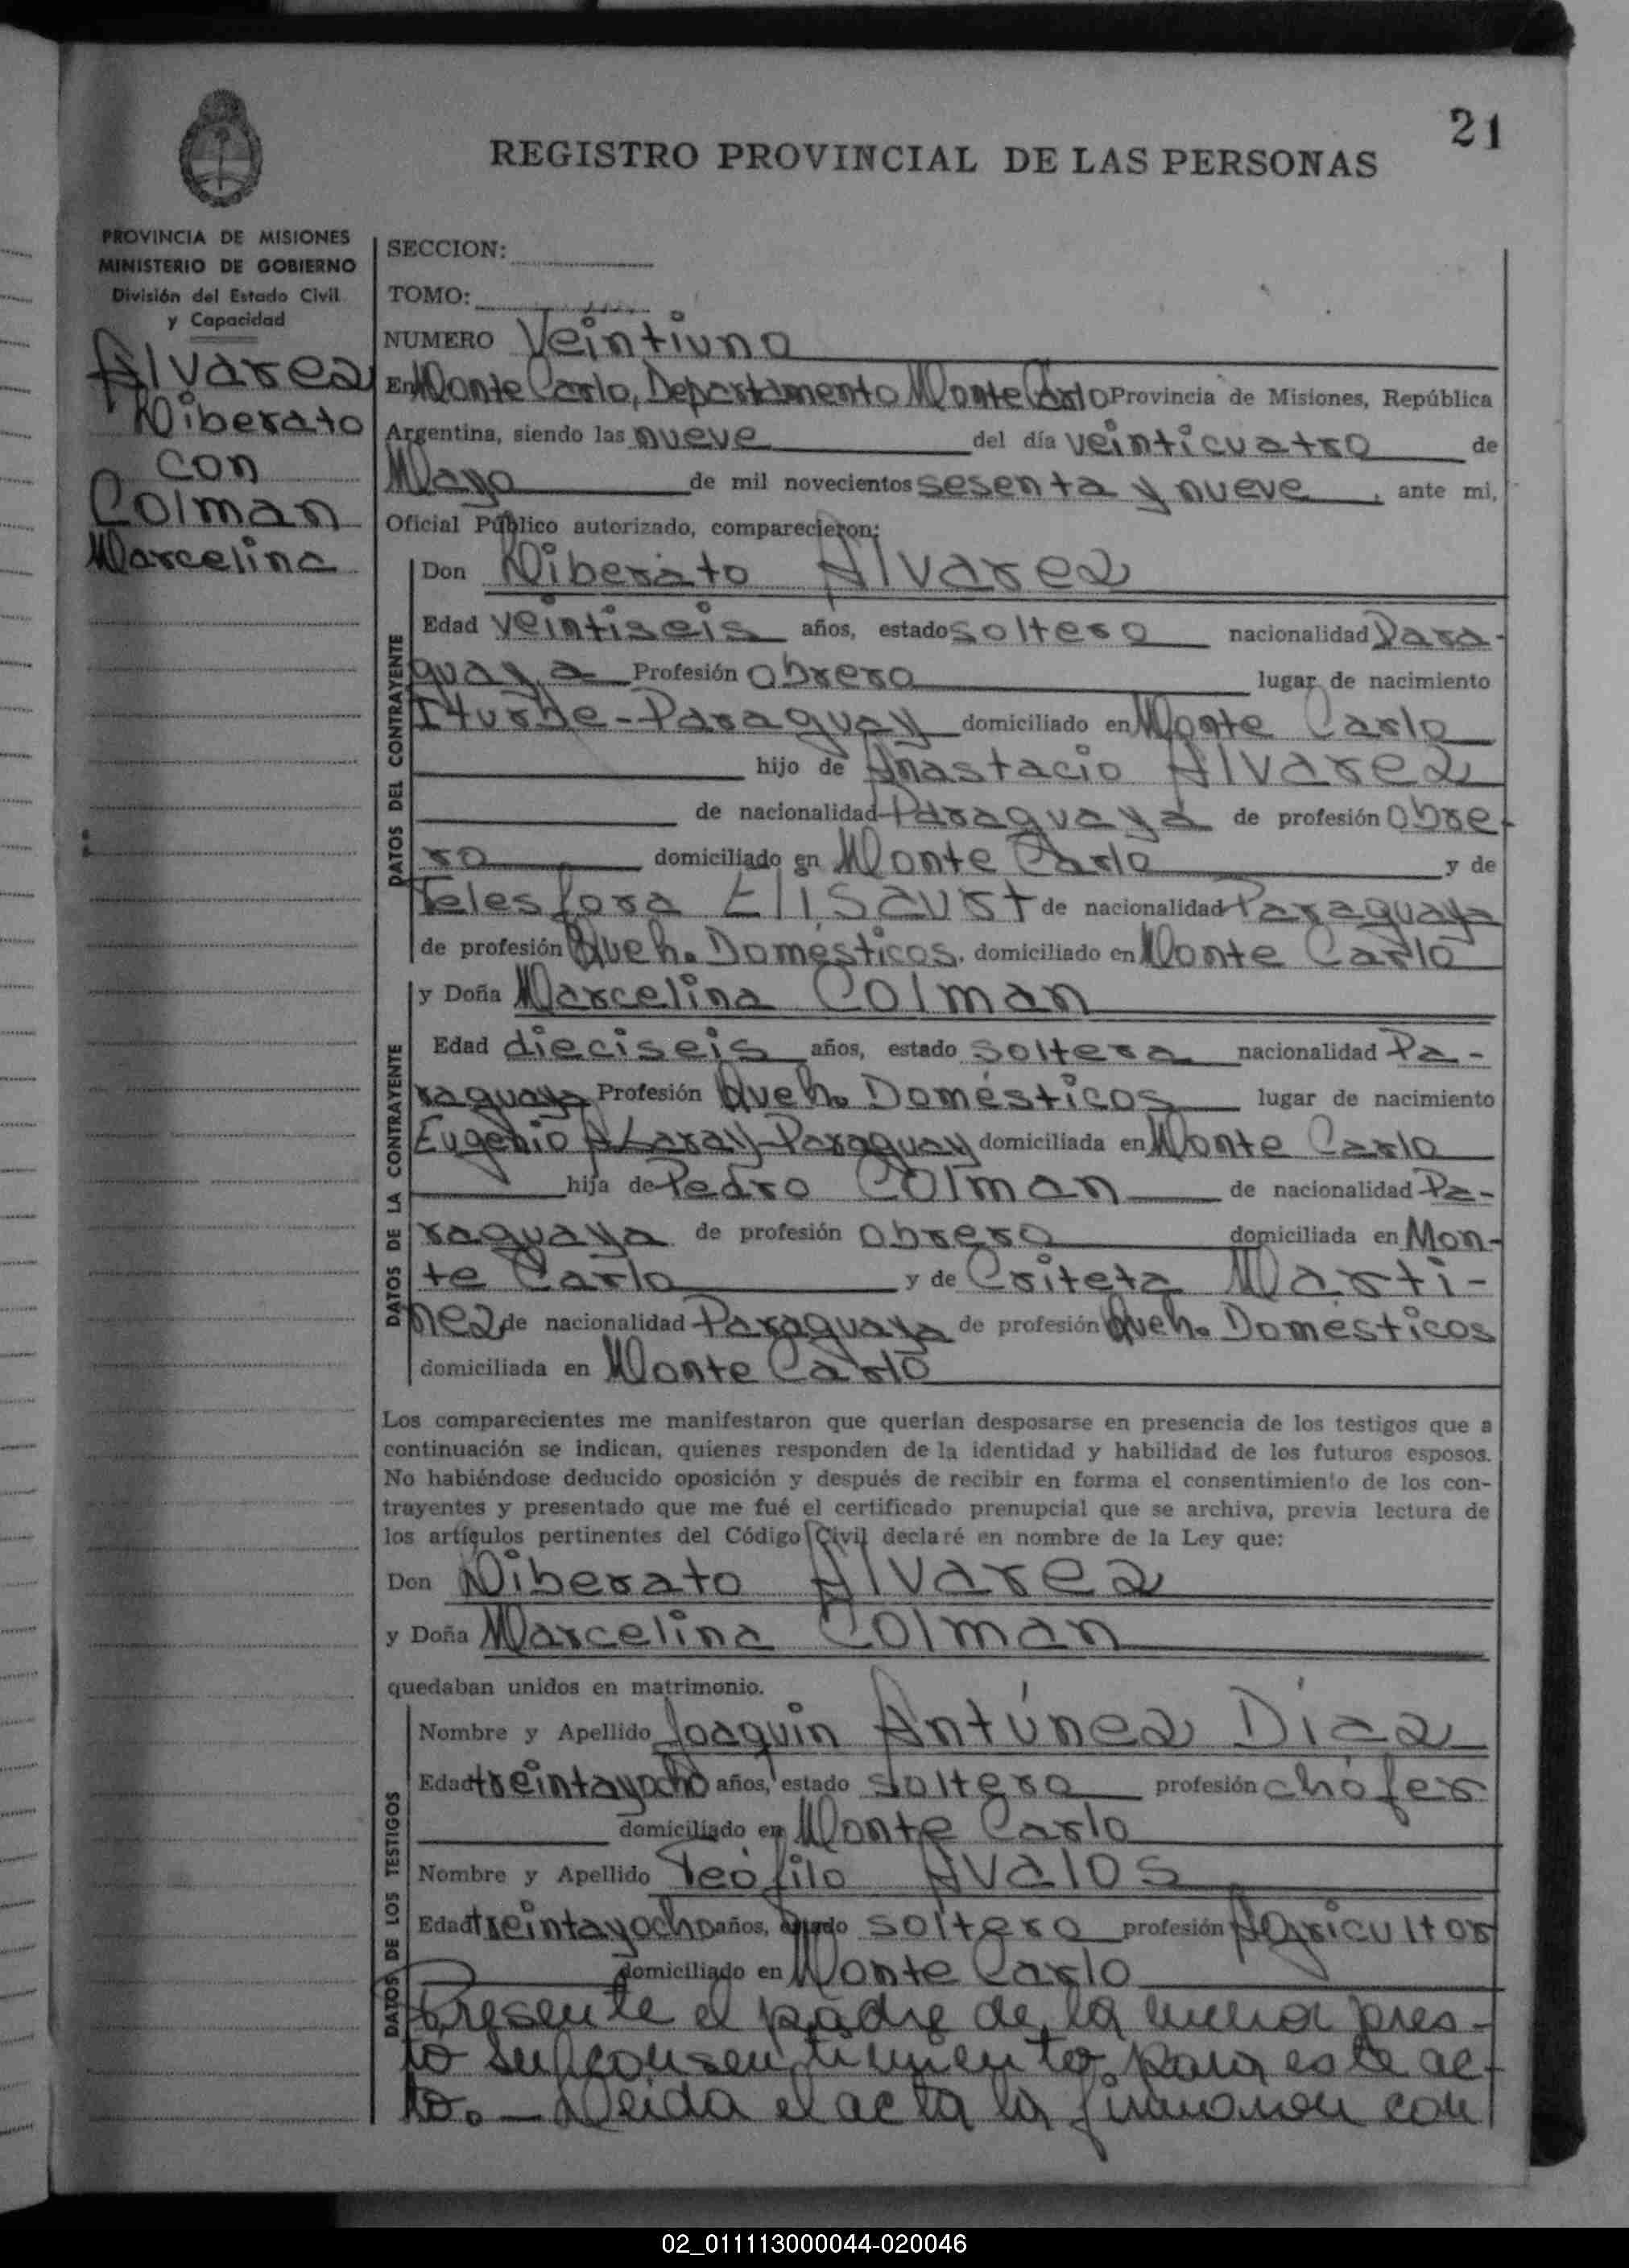 21
REGISTRO PROVINCIAL DE LAS PERSONAS
PROVINCIA DE MISIONES
MINISTERIO DE GOBIERNO
División del Estado Civil
y Capacidad
Alvarez
Liberato
con
Colman
Marcelina
SECCION:
TOMO:
NUMERO Veintiuno
En Monte Carlo, Departamento Monte Carlo Provincia de Misiones, República
Argentina, siendo las nueve del día veinticuatro de
Mayo de mil novecientos sesenta y nueve, ante mi,
Oficial Público autorizado, comparecieron:
DATOS DEL CONTRAYENTE
Don Liberato Alvarez
Edad veintiseis años, estado soltero nacionalidad Para-
guaya Profesión Obrero lugar de nacimiento
Iturbe-Paraguay domiciliado en Monte Carlo
hijo de Anastacio Alvarez
de nacionalidad Paraguaya de profesión Obre-
ro domiciliado en Monte Carlo y de
Telesfora Elisaurt de nacionalidad Paraguaya
de profesión Queh. Domésticos. domiciliado en Monte Carlo
DATOS DE LA CONTRAYENTE
y Doña Marcelina Colman
Edad dieciseis años, estado soltera nacionalidad Pa-
raguaya Profesión Queh. Domésticos lugar de nacimiento
Eugenio A. Garay-Paraguay domiciliada en Monte Carlo
hija de Pedro Colman de nacionalidad Pa-
raguaya de profesión obrero domiciliada en Mon-
te Carlo y de Criteta Marti-
nez de nacionalidad Paraguaya de profesión Queh. Domésticos
domiciliada en Monte Carlo
Los comparecientes me manifestaron que querían desposarse en presencia de los testigos que a
continuación se indican, quienes responden de la identidad y habilidad de los futuros esposos.
No habiéndose deducido oposición y después de recibir en forma el consentimiento de los con-
trayentes y presentado que me fué el certificado prenupcial que se archiva, previa lectura de
los artículos pertinentes del Código Civil declaré en nombre de la Ley que:
Don Liberato Alvarez
y Doña Marcelina Colman
quedaban unidos en matrimonio.
DATOS DE LOS TESTIGOS
Nombre y Apellido Joaquin Antúnez Díaz
Edad treintayocho años, estado soltero profesión chófer
domiciliado en Monte Carlo
Nombre y Apellido Teófilo Avalos
Edad treintayocho años, estado soltero profesión Agricultor
domiciliado en Monte Carlo
Presente el padre de la menor pres-
tó su consentimiento para este ac-
to. - Leida el acta la firmaron con
02_011113000044-020046